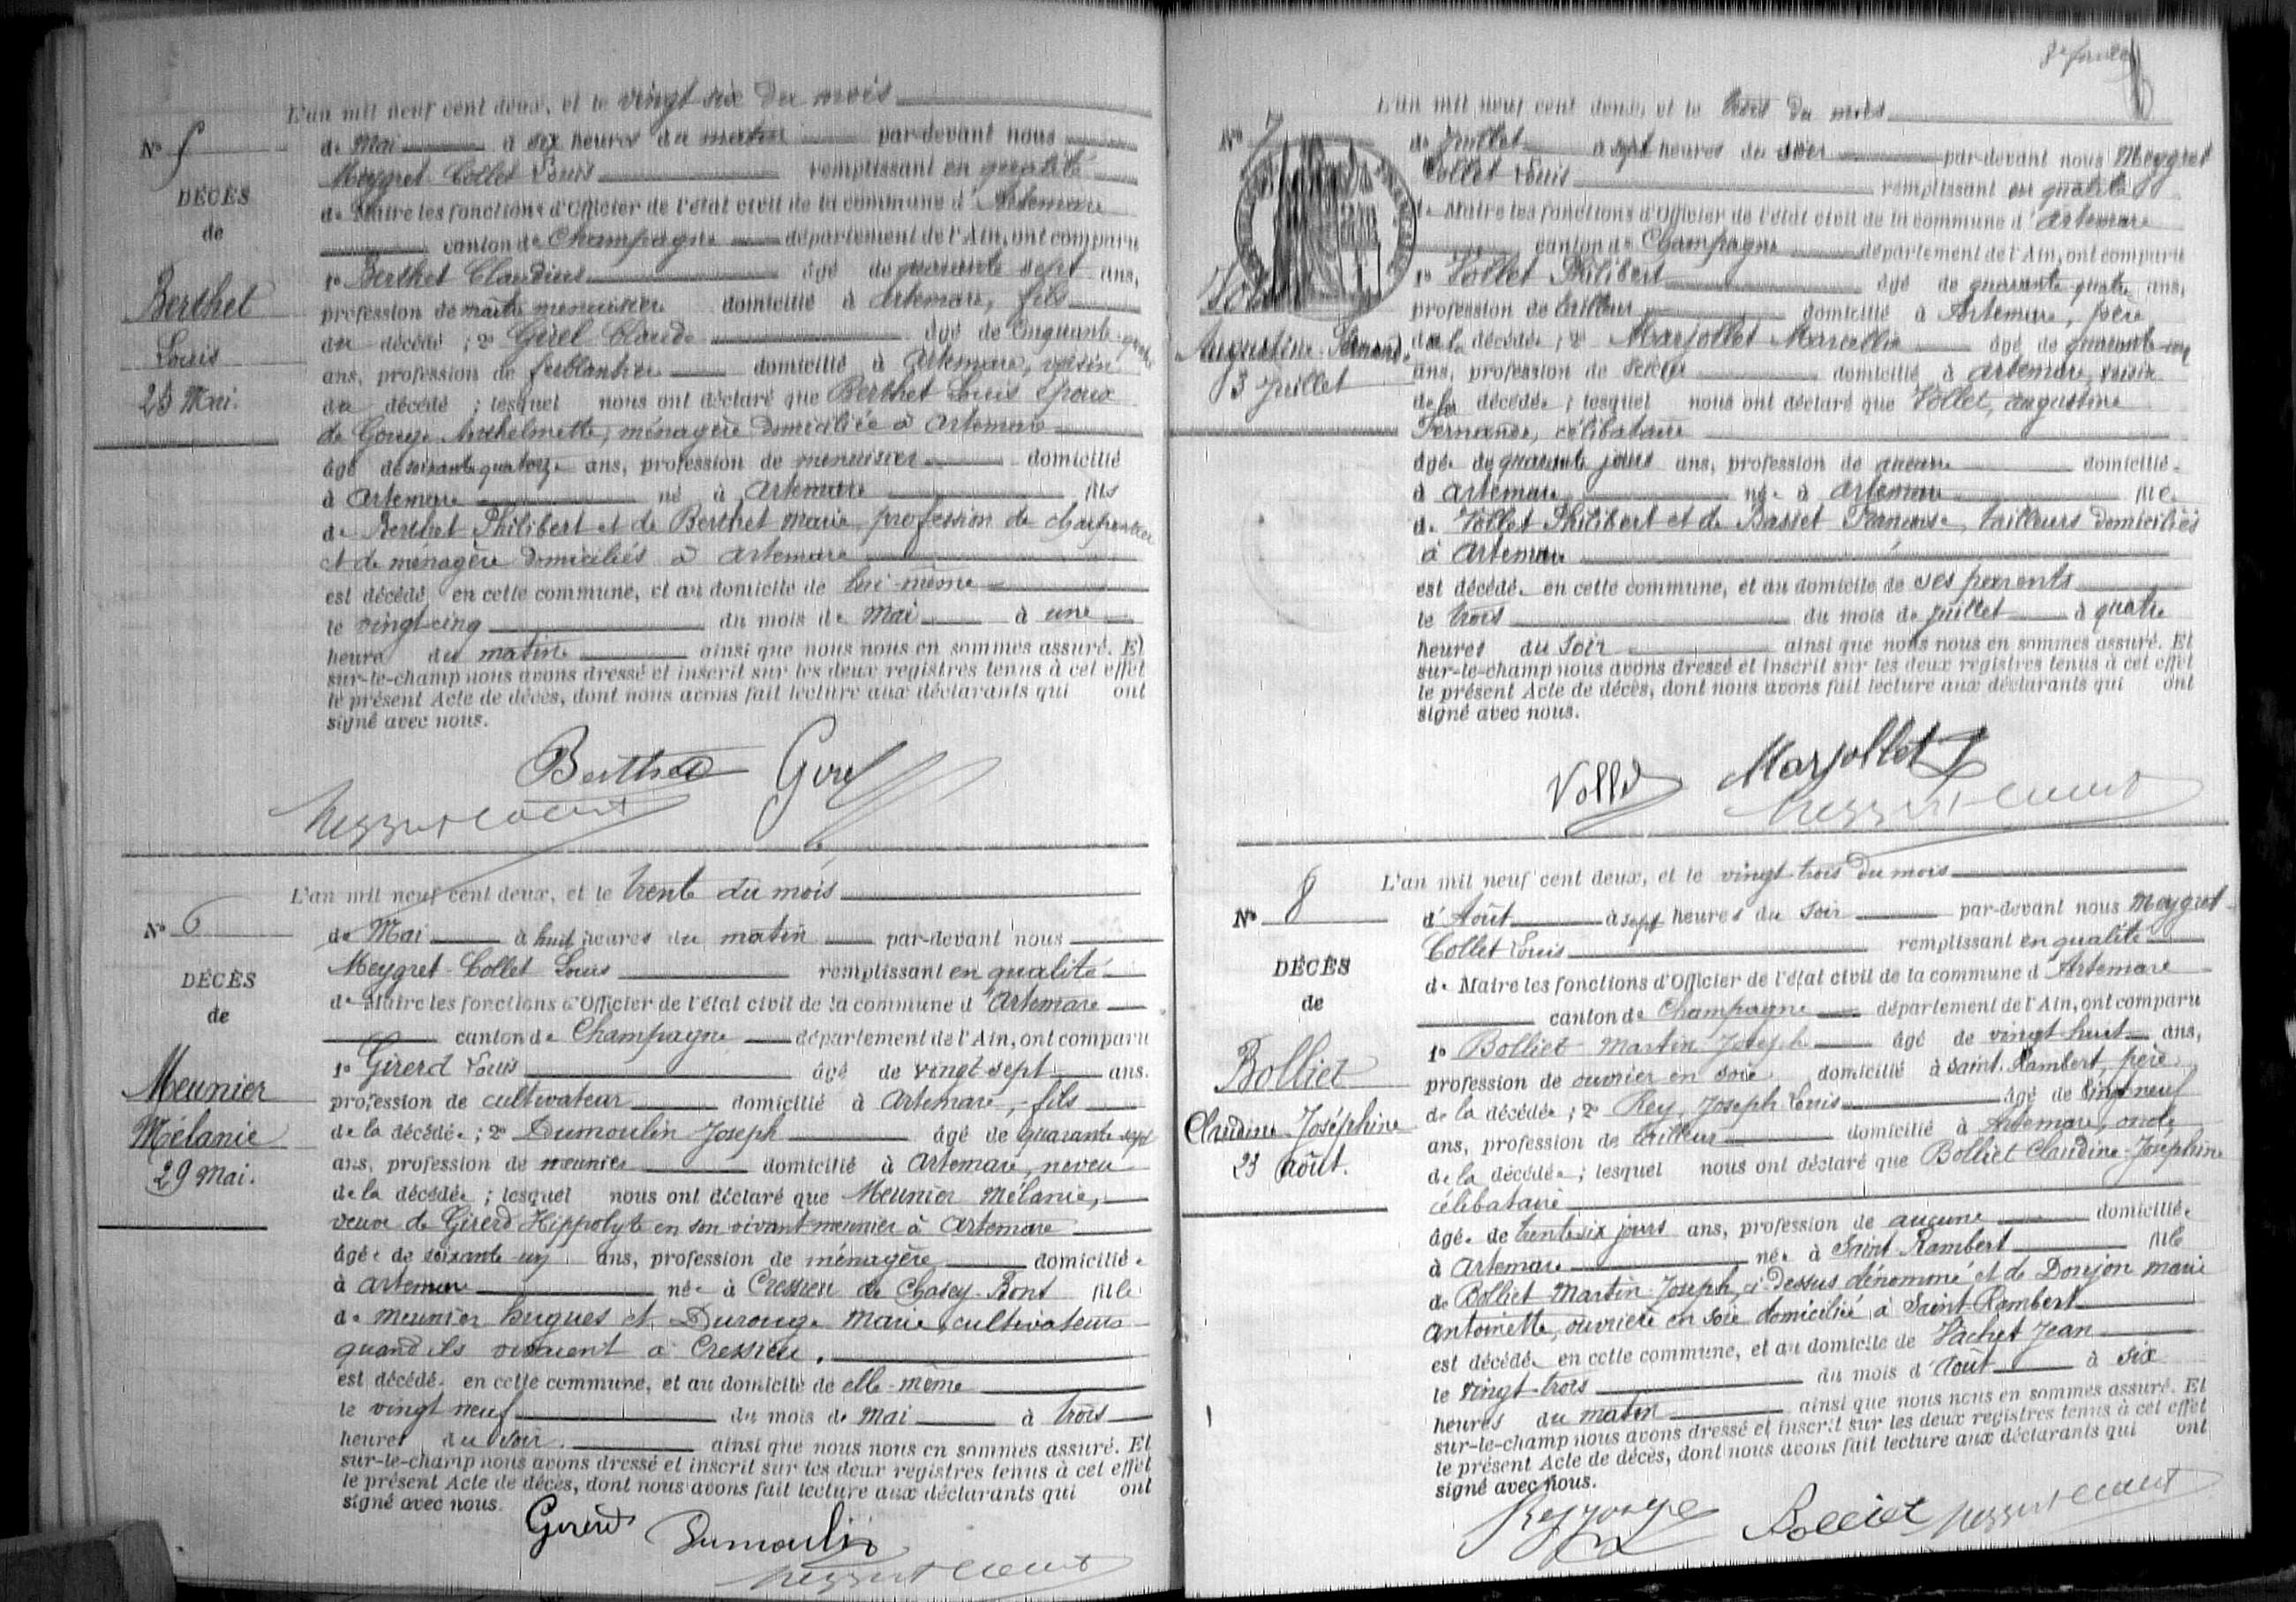 L'an mil neuf cent deux, et le vingt six du mois
N° 5
de Mai à six heures du matin par-devant nous
Meygret-Collet Louis remplissant en qualité
DÉCÈS
de Maire les fonctions d'Officier de l'état civil de la commune d'Artemare
de
canton de Champagne département de l'Ain, ont comparu
1° Berthet Claudius âgé de quarante sept ans,
Berthet
profession de maître menuisier domicilié à Artemare, fils
du décédé ; 2° Girel Claude âgé de cinquante-
Louis
ans, profession de ferblantier domicilié à Artemare, voisin
23 Mai.
du décédé ; lesquel nous ont déclaré que Berthet Louis époux
de Gouge Anthelmette, ménagère domiciliée à Artemare
âgé de soixante quatorze ans, profession de menuisier domicilié
à Artemare né à Artemare fils
de Berthet Philibert et de Berthet Marie, profession de charpentier
et de ménagère domiciliés à Artemare
est décédé en cette commune, et au domicile de lui-même
le vingt-cinq du mois de Mai à une
heure du matin ainsi que nous nous en sommes assuré. Et
sur-le-champ nous avons dressé et inscrit sur les deux registres tenus à cet effet
le présent Acte de décès, dont nous avons fait lecture aux déclarants qui ont
signé avec nous.
Berthet Girel
Meygret-Collet
L'an mil neuf cent deux, et le trente du mois
N° 6
de Mai à huit heures du matin par-devant nous
Meygret-Collet Louis remplissant en qualité
DÉCÈS
de Maire les fonctions d'Officier de l'état civil de la commune d'Artemare
de
canton de Champagne département de l'Ain, ont comparu
1° Girerd Louis âgé de vingt-sept ans.
Meunier
profession de cultivateur domicilié à Artemare, fils
Mélanie
de la décédée ; 2° Dumoulin Joseph âgé de quarante sept
ans, profession de meunier domicilié à Artemare, neveu
29 Mai.
de la décédée ; lesquel nous ont déclaré que Meunier Mélanie,
veuve de Girerd Hippolyte en son vivant meunier à Artemare
âgée de soixante-un ans, profession de ménagère domiciliée
à Artemare née à Cressieu de Chazey-Bons fille
de Meunier Hugues et Durouge Marie, cultivateurs
quand ils vivaient à Cressieu.
est décédée en cette commune, et au domicile de elle-même
le vingt neuf du mois de Mai à trois
heures du soir ainsi que nous nous en sommes assuré. Et
sur-le-champ nous avons dressé et inscrit sur les deux registres tenus à cet effet
le présent Acte de décès, dont nous avons fait lecture aux déclarants qui ont
signé avec nous.
Girerd Dumoulin
Meygret-Collet
L'an mil neuf cent deux, et le trois du mois
N° 7
de Juillet à sept heures du soir par-devant nous Meygret
Collet Louis remplissant en qualité
de Maire les fonctions d'Officier de l'état civil de la commune d'Artemare
canton de Champagne département de l'Ain, ont comparu
1° Vollet Philibert âgé de quarante-quatre ans,
profession de tailleur domicilié à Artemare, père
de la décédée ; 2° Marjollet Marcellin âgé de quarante-un
Augustine-Fernande
ans, profession de domicilié à Artemare, voisin
3 Juillet
de la décédée ; lesquel nous ont déclaré que Vollet, Augustine
Fernande, célibataire
âgée de quarante jours ans, profession de aucune domiciliée
à Artemare née à Artemare fille
de Vollet Philibert et de Basset Françoise, tailleurs domiciliés
à Artemare
est décédée en cette commune, et au domicile de ses parents
le trois du mois de juillet à quatre
heures du soir ainsi que nous nous en sommes assuré. Et
sur-le-champ nous avons dressé et inscrit sur les deux registres tenus à cet effet
le présent Acte de décès, dont nous avons fait lecture aux déclarants qui ont
signé avec nous.
Vollet Marjollet
Meygret-Collet
L'an mil neuf cent deux, et le vingt-trois du mois
N° 8
d'Août à sept heures du soir par-devant nous Meygret-
Collet Louis remplissant en qualité
DÉCÈS
de Maire les fonctions d'Officier de l'état civil de la commune d'Artemare
de
canton de Champagne département de l'Ain, ont comparu
1° Bolliet Martin Joseph âgé de vingt-huit ans,
Bolliet
profession de ouvrier en soie domicilié à Saint-Rambert, père
de la décédée ; 2° Rey, Joseph Louis âgé de vingt-neuf
Claudine-Joséphine
ans, profession de tailleur domicilié à Artemare, oncle
23 Août.
de la décédée ; lesquel nous ont déclaré que Bolliet Claudine-Joséphine
célibataire
âgée de trente-six jours ans, profession de aucune domiciliée
à Artemare née à Saint-Rambert fille
de Bolliet Martin-Joseph, ci-dessus dénommé et de Donjon Marie
Antoinette, ouvrière en soie domiciliée à Saint-Rambert
est décédée en cette commune, et au domicile de Vachet Jean
le vingt-trois du mois d'Août à six
heures du matin ainsi que nous nous en sommes assuré. Et
sur-le-champ nous avons dressé et inscrit sur les deux registres tenus à cet effet
le présent Acte de décès, dont nous avons fait lecture aux déclarants qui ont
signé avec nous.
Bolliet Meygret-Collet